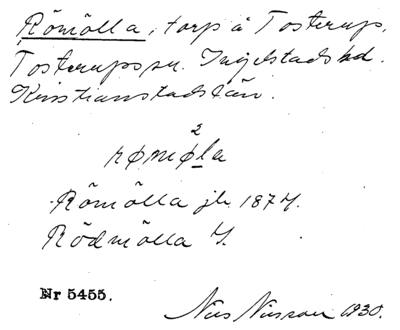 Römölla, torp å Tosterup,
Tosterups sn. Ingelstads hd.
Kristianstads län.
2
rømøla
Römölla jb 1877.
Rödmölla
Nr 5455.
Nils Nilsson 1930.